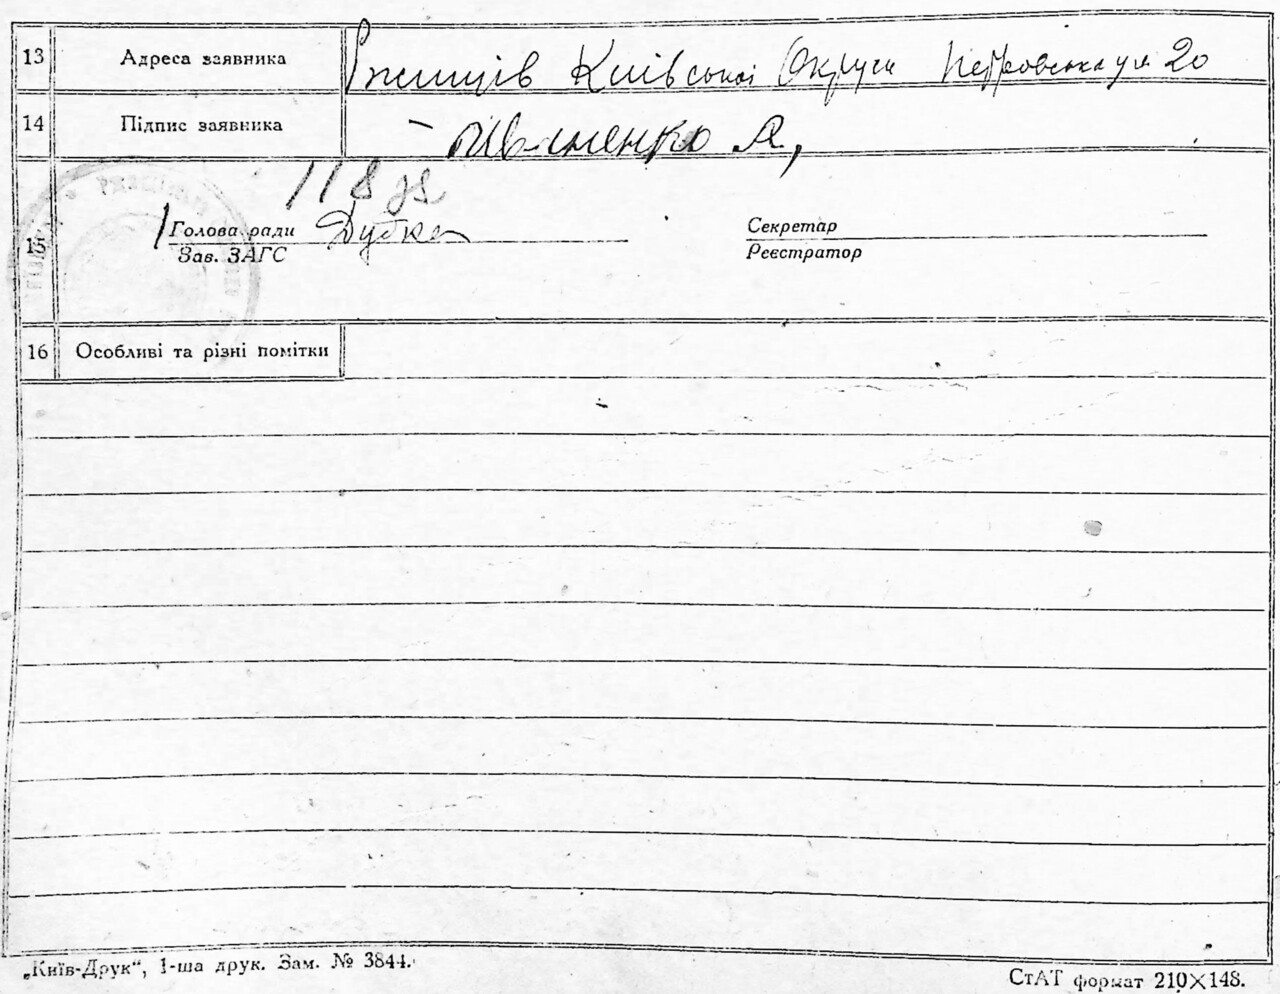 13 Адреса заявника Ржищів Київської Округи Петровська ул 20
14 Підпис заявника А,
118
15 Голова ради Дубка Секретар
Зав. ЗАГС Реєстратор
16 Особливі та різні помітки
„Київ-Друк“, 1-ша друк. Зам. № 3844.
СтАТ формат 210×148.